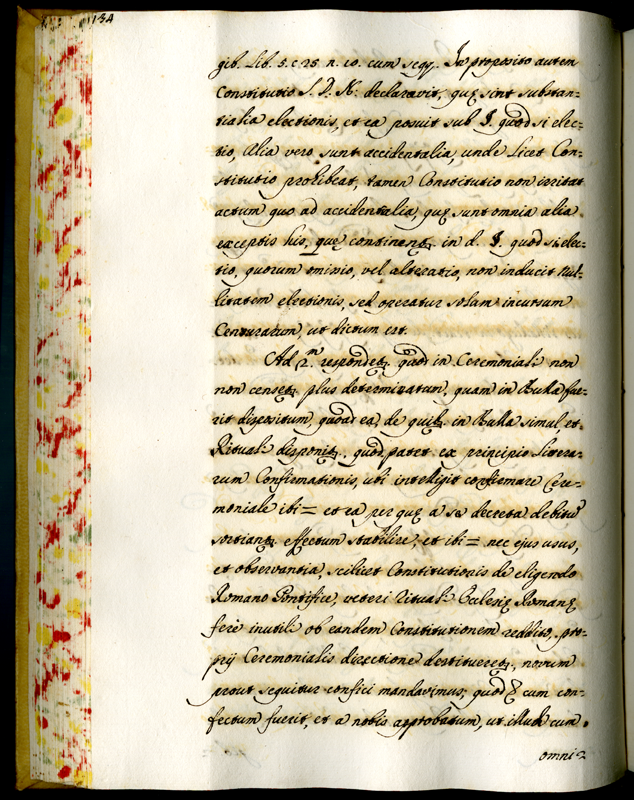 134
gib. Lib. 5. c. 25 n. 10. cum seqq. In proposito autem
Constitutio S. D. N. declaravit, quę sint substan=
tialia electionis, et ea posuit sub §. quod si elec=
tio, Alia vero sunt accidentalia, unde Licet Con=
stitutio prohibeat, tamen Constitutio non irritat
actum quo ad accidentalia, quę sunt omnia alia
exceptis his, quę continent, in d. §. quod si elec=
tio, quorum omissio, vel alteratio, non inducit nul=
litatem electionis, sed operatur solam incursum
Censurarum, ut dictum est.
Ad 2.m respondet, quod in Ceremoniali non
non censet, plus determinatum, quam in Bulla fue=
rit dispositum, quoad ea, de quib, in Bulla simul, et
Rituali disponit, quod patet ex principio Littera=
rum Confirmationis, ubi intelligit confirmare Cęre=
moniale ibi = et ea per quę a se decreta debitũ
sortiant, effectum stabilire, et ibi = nec ejus usus,
et observantia, scilicet Constitutionis de eligendo
Romano Pontifice, veteri Rituali Ecclesię Romanę
fere inutili ob eandem Constitutionem reddito, pro=
prij Ceremonialis directione destitueret, novum
prout sequitur confici mandavimus; quod cum con=
fectum fuerit, et a nobis approbatum, ut illud cum
omni=